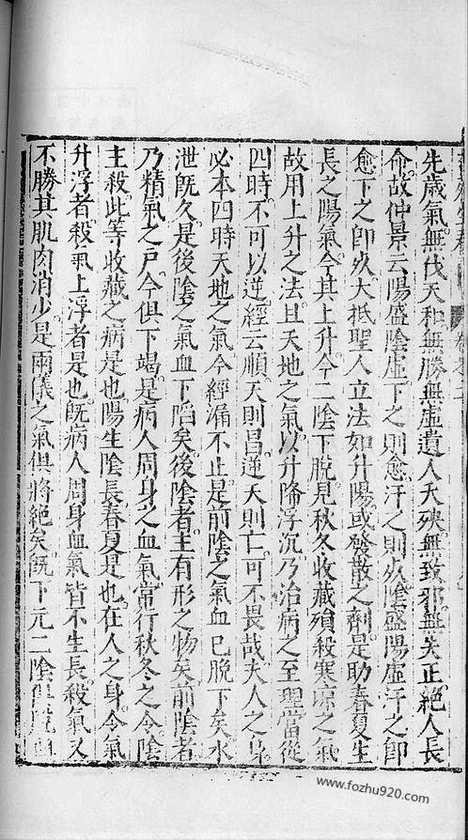 先歲氣無伐天和無勝無虛遺人夭殃無致邪無失正絕人長
命故仲景云陽盛陰虛下之則愈汗之則死陰盛陽虛汗之即
愈下之即死大抵聖人立法如升陽或發散之劑是助春夏生
長之陽氣令其上升今二陰下脫見秋冬收藏殞殺寒凉之氣
故用上升之法且天地之氣以升降浮沉乃治病之至理當從
四時不可以逆經云順天則昌逆天則亡可不畏哉夫人之身
必本四時天地之氣今經漏不止是前陰之氣血已脫下矣水
泄既久是後陰之氣血下陷矣後陰者主有形之物矣前陰者
乃精氣之戶今俱下竭是病人周身之血氣常行秋冬之令陰
主殺此等收藏之病是也陽生陰長春夏是也在人之身令氣
升浮者殺氣上浮者是也既病人周身血氣皆不生長殺氣又
不勝其肌肉消少是兩儀之氣俱將絕矣既下元二陰俱脫
www.fozhu920.com